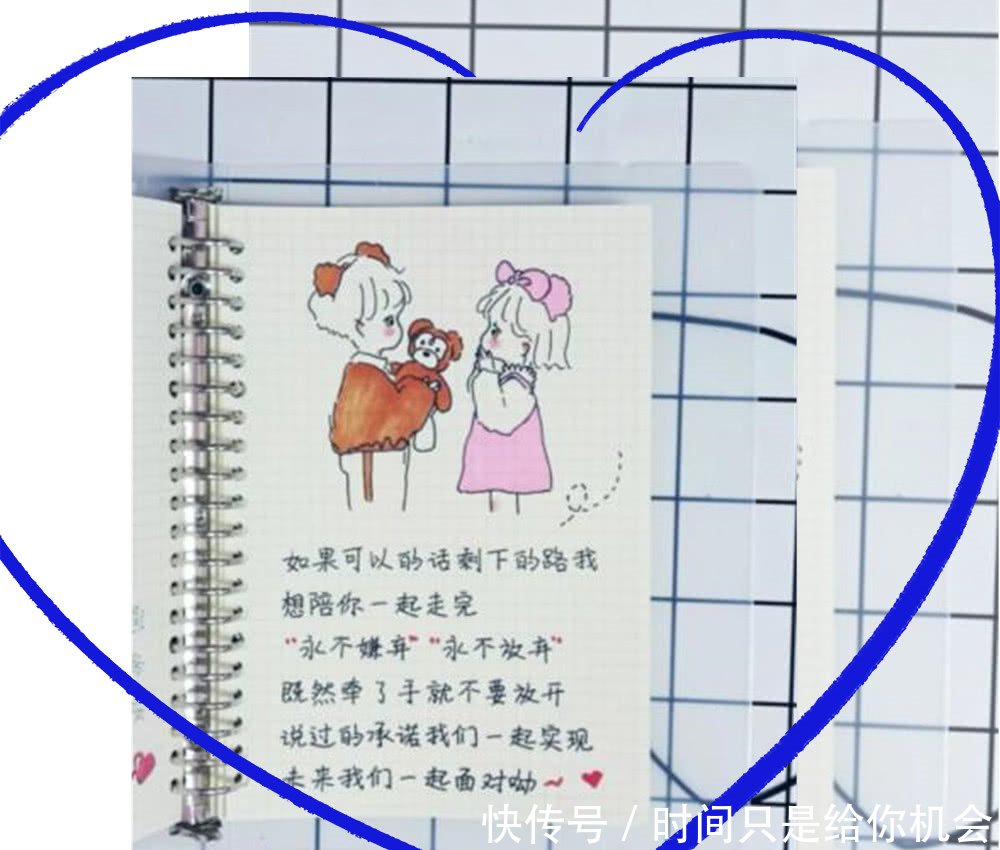 如果可以的话剩下的路我
想陪你一起走完
“永不嫌弃”“永不放弃”
既然牵了手就不要放开
说过的承诺我们一起实现
未来我们一起面对呦~
快传号 / 时间只是给你机会